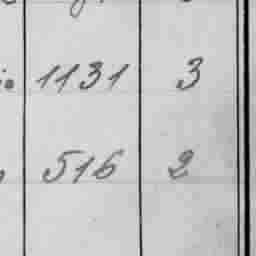 1131 3
516 2